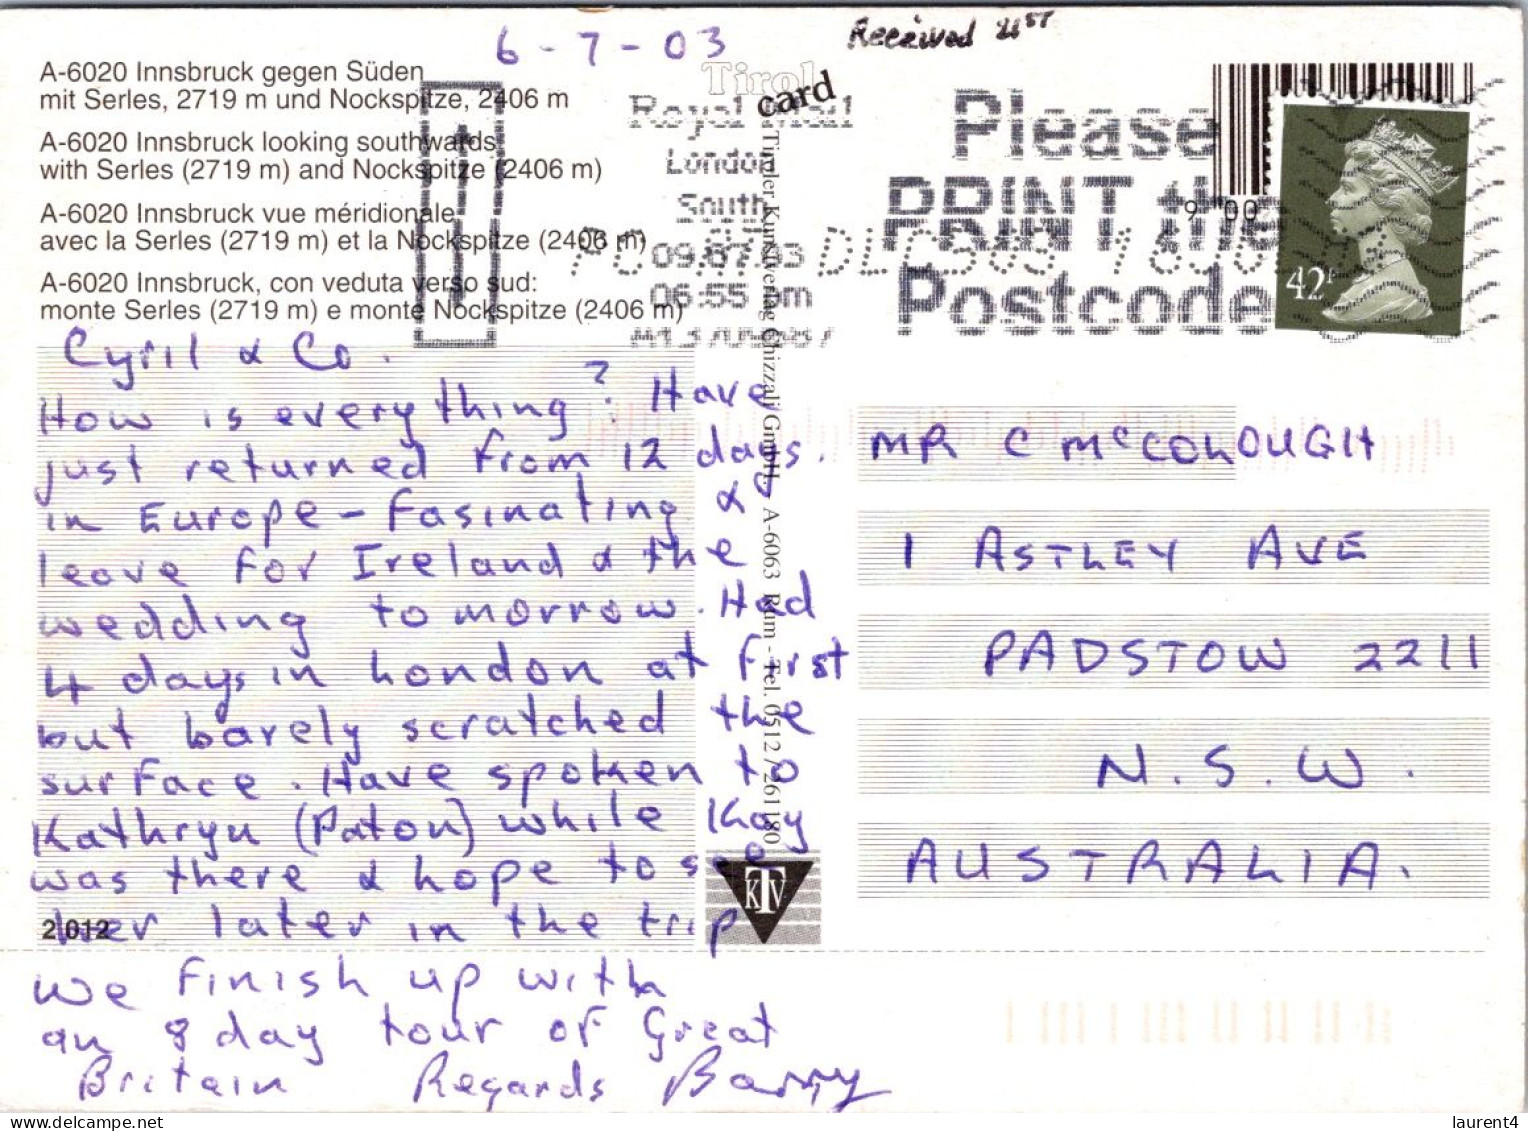 6-7-03
Received 21ST
A-6020 Innsbruck gegen Süden
mit Serles, 2719 m und Nockspitze, 2406 m
A-6020 Innsbruck looking southwards
with Serles (2719 m) and Nockspitze (2406 m)
A-6020 Innsbruck vue méridionale
avec la Serles (2719 m) et la Nockspitze (2406 m)
A-6020 Innsbruck, con veduta verso sud:
monte Serles (2719 m) e monte Nockspitze (2406 m)
Tirol
card
Royal Mail
London
South
09.07.03
06:55 pm
Please
PRINT the
Postcode
9 00
42P
Tiroler Kunstverlag Chizzali GmbH., A-6063 Rum - Tel. 0512 / 261180
Cyril & Co.
How is everything? Have
just returned from 12 days.
in Europe - fasinating &
leave for Ireland & the
wedding tomorrow. Had
4 days in London at first
but barely scratched the
surface. Have spoken to
Kathryn (Paton) while Kay
was there & hope to see
her later in the trip
We finish up with
an 8 day tour of Great
Britain Regards Barry
2 012
KTV
MR C McCOLOUGH
1 ASTLEY AVE
PADSTOW 2211
N.S.W.
AUSTRALIA.
laurent4